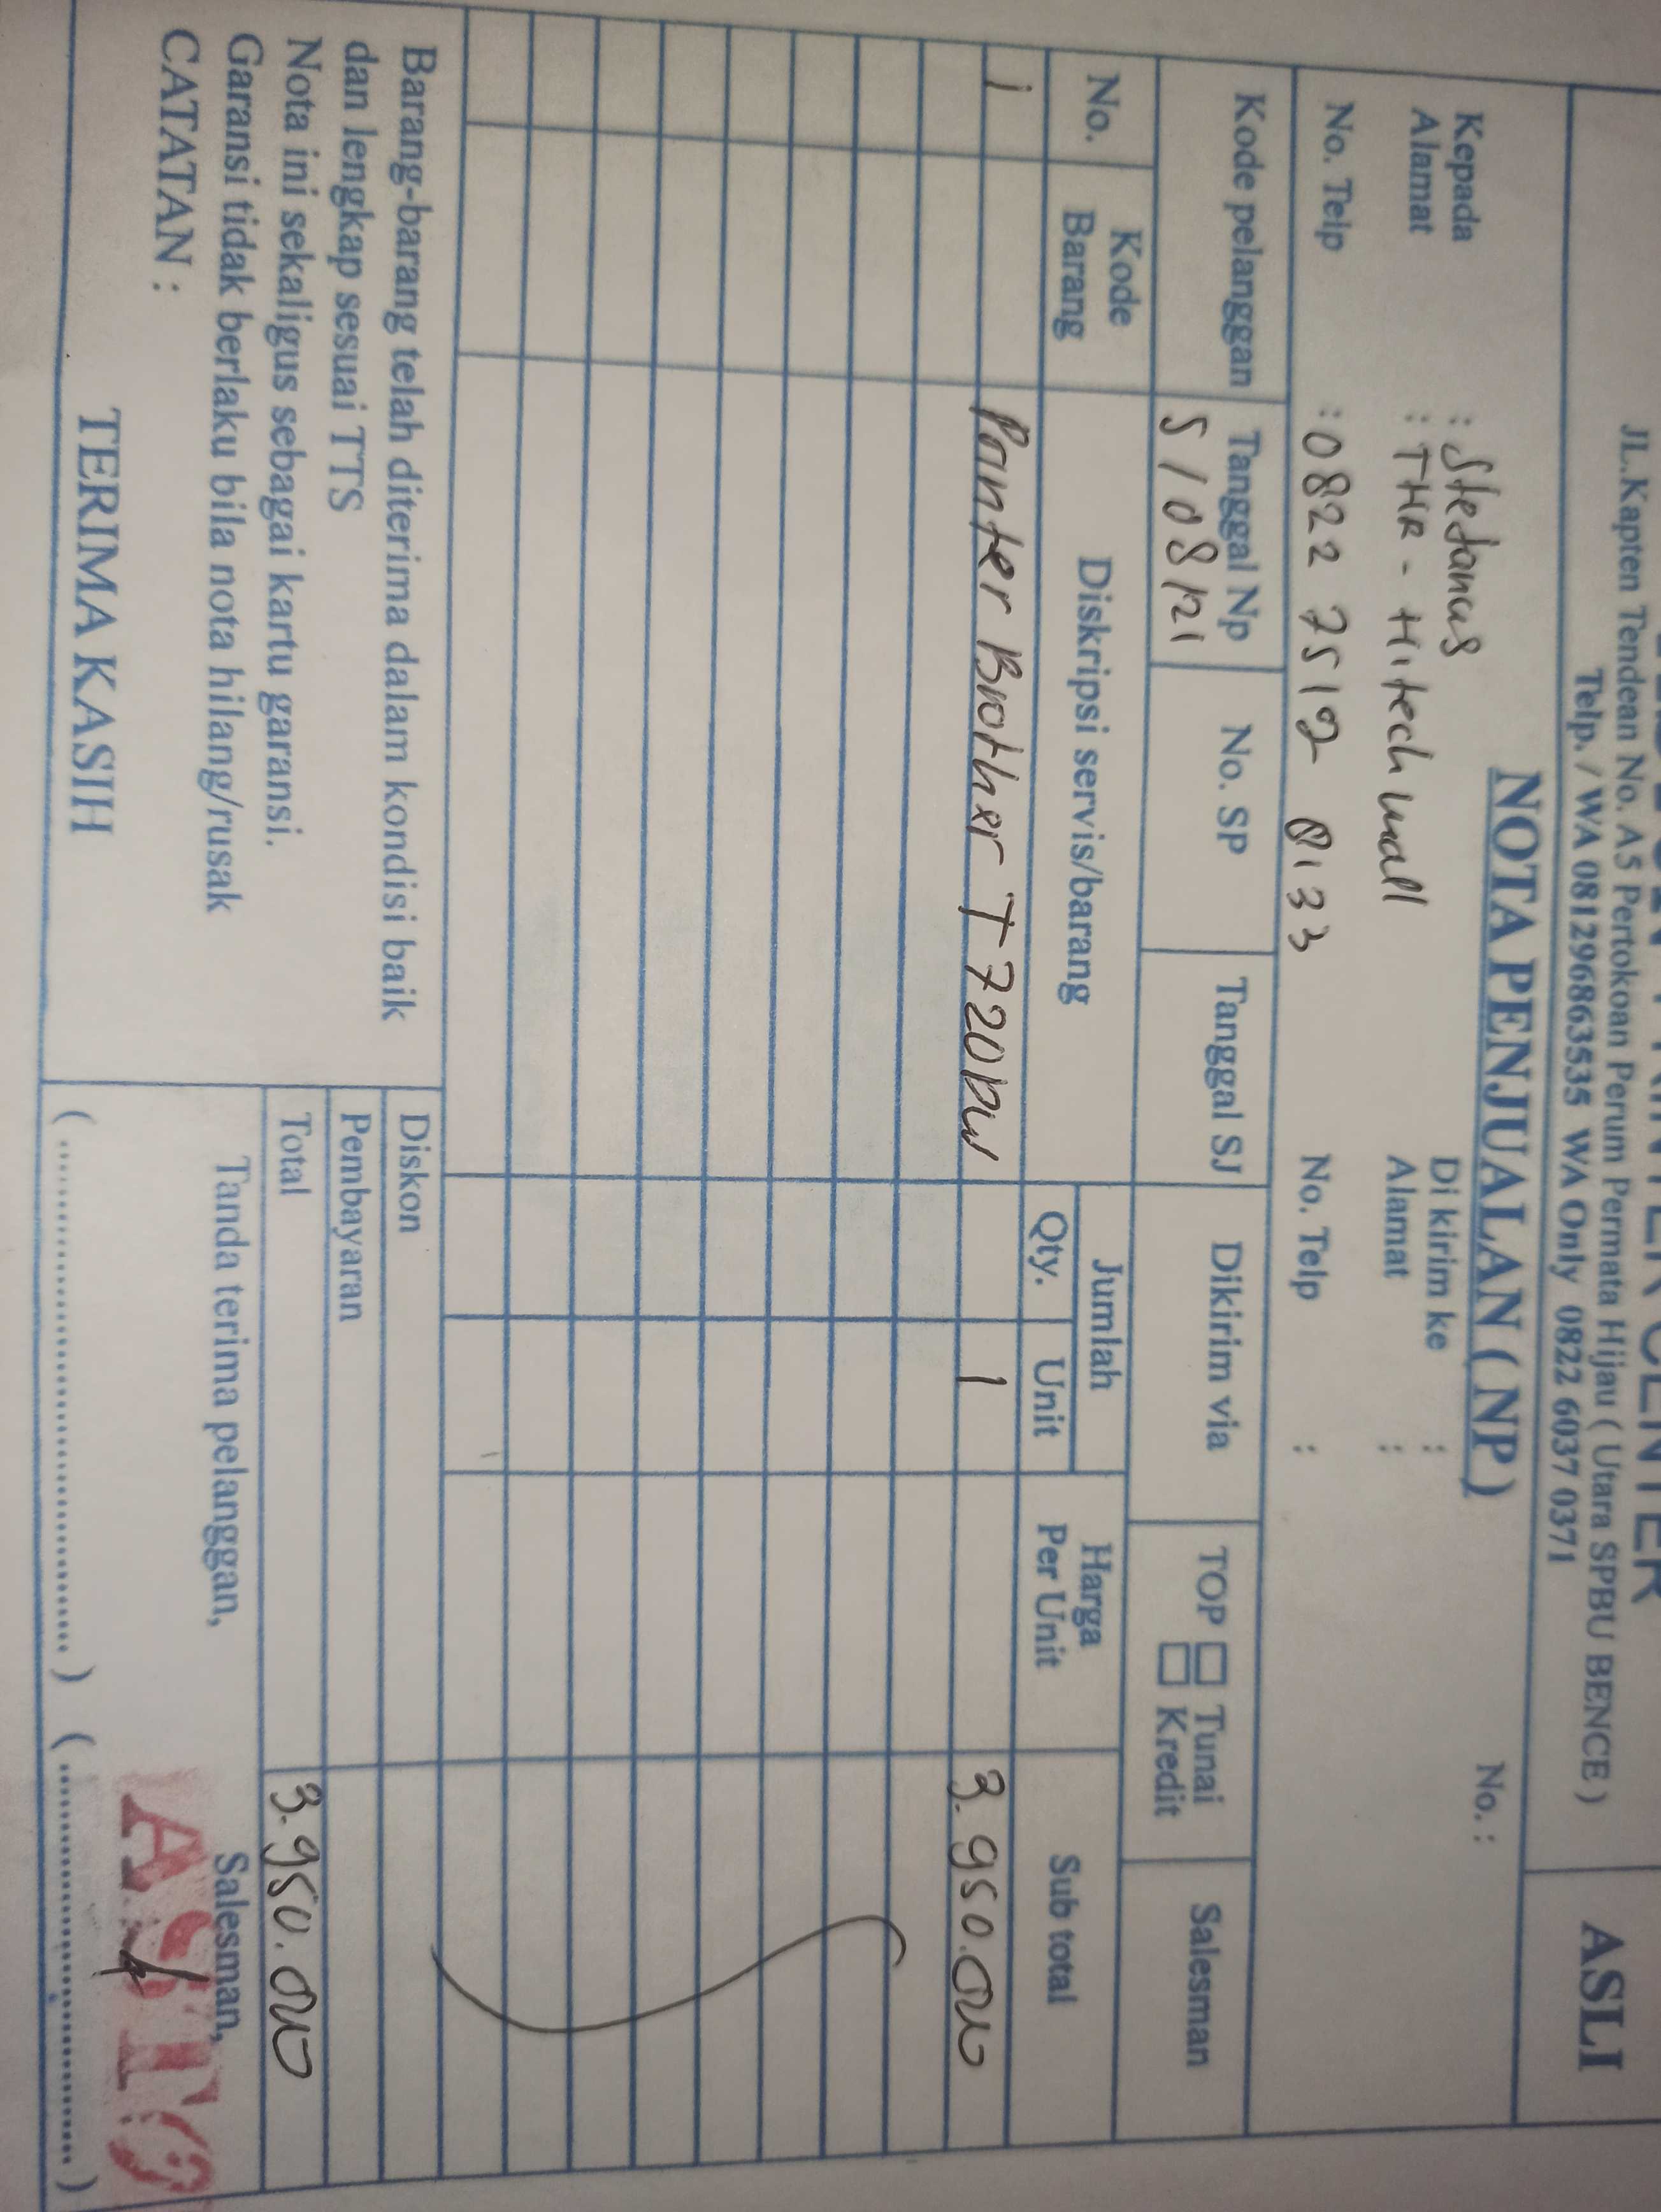 PRINTER CENTER
JL.Kapten Tendean No. A5 Pertokoan Perum Permata Hijau ( Utara SPBU BENCE )
Telp. / WA 081296863535 WA Only 0822 6037 0371
ASLI
NOTA PENJUALAN ( NP )
No. :
Kepada : Stefanus
Alamat : THR - Hitech mall
No. Telp : 0822 7512 0133
Di kirim ke :
Alamat :
No. Telp :
Kode pelanggan Tanggal Np No. SP Tanggal SJ Dikirim via TOP Tunai Kredit Salesman
5/08/21
No. Kode Barang Diskripsi servis/barang Jumlah Qty. Unit Harga Per Unit Sub total
1 Panter Brother T720DW 1 3.950.000
Barang-barang telah diterima dalam kondisi baik
dan lengkap sesuai TTS
Nota ini sekaligus sebagai kartu garansi.
Garansi tidak berlaku bila nota hilang/rusak
CATATAN :
TERIMA KASIH
Diskon
Pembayaran
Total 3.950.000
Tanda terima pelanggan, Salesman,
(....................) (....................)